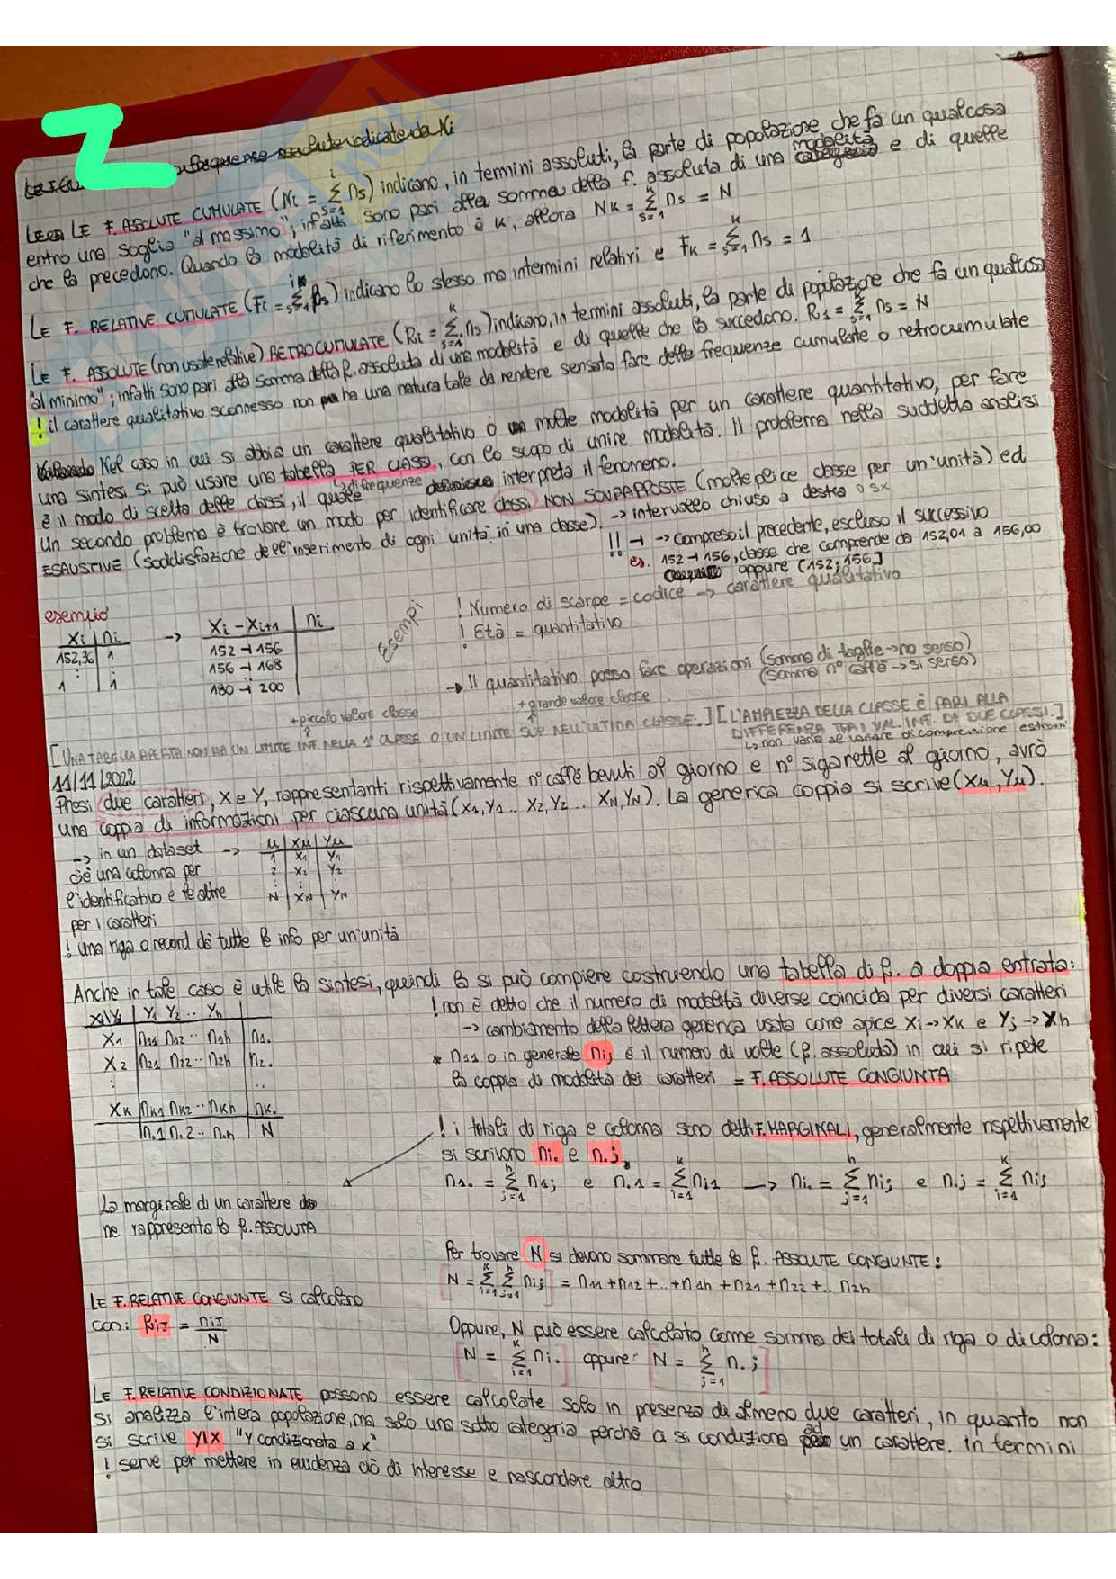 2
LE F. ASSOLUTE CUMULATE (Ni = Σ s=1 i ns) indicano, in termini assoluti, la parte di popolazione che fa un qualcosa
entro una soglia "al massimo", infatti sono pari alla somma della f. assoluta di una modalità e di quelle
che la precedono. Quando la modalità di riferimento è K, allora NK = Σ s=1 K ns = N
LE F. RELATIVE CUMULATE (Fi = Σ s=1 i fs) indicano lo stesso ma in termini relativi e FK = Σ s=1 K ns = 1
LE F. ASSOLUTE (non usate relative) RETROCUMULATE (Ri = Σ s=1 K ns) indicano, in termini assoluti, la parte di popolazione che fa un qualcosa
"al minimo", infatti sono pari alla somma della f. assoluta di una modalità e di quelle che la succedono. R1 = Σ s=1 K ns = N
! il carattere qualitativo sconnesso non ha una natura tale da rendere sensato fare delle frequenze cumulate o retrocumulate
Nel caso in cui si abbia un carattere qualitativo o molte modalità per un carattere quantitativo, per fare
una sintesi si può usare una tabella PER CLASSI, con lo scopo di unire modalità. Il problema nella suddetta analisi
è il modo di scelta delle classi, il quale di frequenze interpreta il fenomeno.
Un secondo problema è trovare un modo per identificare classi NON SOVRAPPOSTE (molteplice classe per un'unità) ed
ESAUSTIVE (soddisfazione dell'inserimento di ogni unità in una classe).
→ intervallo chiuso a destra o sx
!! ⊣ → compreso il precedente, escluso il successivo
es. 152⊣156, classe che comprende da 152,01 a 156,00
oppure (152;156]
esempio
xi | ni → xi - xi+1 | ni
152,36 | 1 152⊣156
: : 156⊣168
1 1 190⊣200
Esempi
! Numero di scarpe = codice → carattere qualitativo
! Età = quantitativo
→ il quantitativo posso fare operazioni (somma di taglie → no senso)
(somma n° caffè → si senso)
+ piccolo valore classe
+ grande valore classe
[UNA TABELLA APERTA NON HA UN LIMITE INF. NELLA 1° CLASSE O UN LIMITE SUP. NELL'ULTIMA CLASSE.] [L'AMPIEZZA DELLA CLASSE È PARI ALLA
DIFFERENZA TRA I VAL. INF. DI DUE CLASSI.]
↳ non varia al variare di compressione estremi
11/11/2022
Presi due caratteri, X e Y, rappresentanti rispettivamente n° caffè bevuti al giorno e n° sigarette al giorno, avrò
una coppia di informazioni per ciascuna unità (x1,Y1 .. X2,Y2 .. XN,YN). La generica coppia si scrive (xu,Yu).
→ in un dataset → u | xu | yu
c'è una colonna per 1 | x1 | Y1
l'identificativo e le altre 2 | x2 | Y2
per i caratteri N | xN | YN
! una riga o record dà tutte le info per un'unità
Anche in tale caso è utile la sintesi, quindi la si può compiere costruendo una tabella di f. a doppia entrata:
xi\Yj | Y1 Y2 .. Yh
X1 | n11 n12 .. n1h | n1.
X2 | n21 n22 .. n2h | n2.
: ..
XK | nK1 nK2 .. nKh | nK.
n.1 n.2 .. n.h | N
! non è detto che il numero di modalità diverse coincida per diversi caratteri
→ cambiamento della lettera generica usata come apice Xi→XK e Yj→Yh
* n11 o in generale nij è il numero di volte (f. assoluta) in cui si ripete
la coppia di modalità dei caratteri = F. ASSOLUTE CONGIUNTA
! i totali di riga e colonna sono detti F. MARGINALI, generalmente rispettivamente
si scrivono ni. e n.j.
n1. = Σ j=1 h n1j e n.1 = Σ i=1 K ni1 → ni. = Σ j=1 h nij e n.j = Σ i=1 K nij
La marginale di un carattere
ne rappresenta la f. ASSOLUTA
Per trovare N si devono sommare tutte le f. ASSOLUTE CONGIUNTE:
[N = Σ i=1 K Σ j=1 h nij] = n11 + n12 + .. + n1h + n21 + n22 + .. n2h
LE F. RELATIVE CONGIUNTE si calcolano
con: fij = nij / N
Oppure, N può essere calcolato come somma dei totali di riga o di colonna:
[N = Σ i=1 K ni.] oppure [N = Σ j=1 h n.j]
LE F. RELATIVE CONDIZIONATE possono essere calcolate solo in presenza di almeno due caratteri, in quanto non
si analizza l'intera popolazione, ma solo una sotto categoria perchè a si condiziona ad un carattere. In termini
si scrive Y|X "Y condizionata a x"
! serve per mettere in evidenza ciò di interesse e nascondere altro